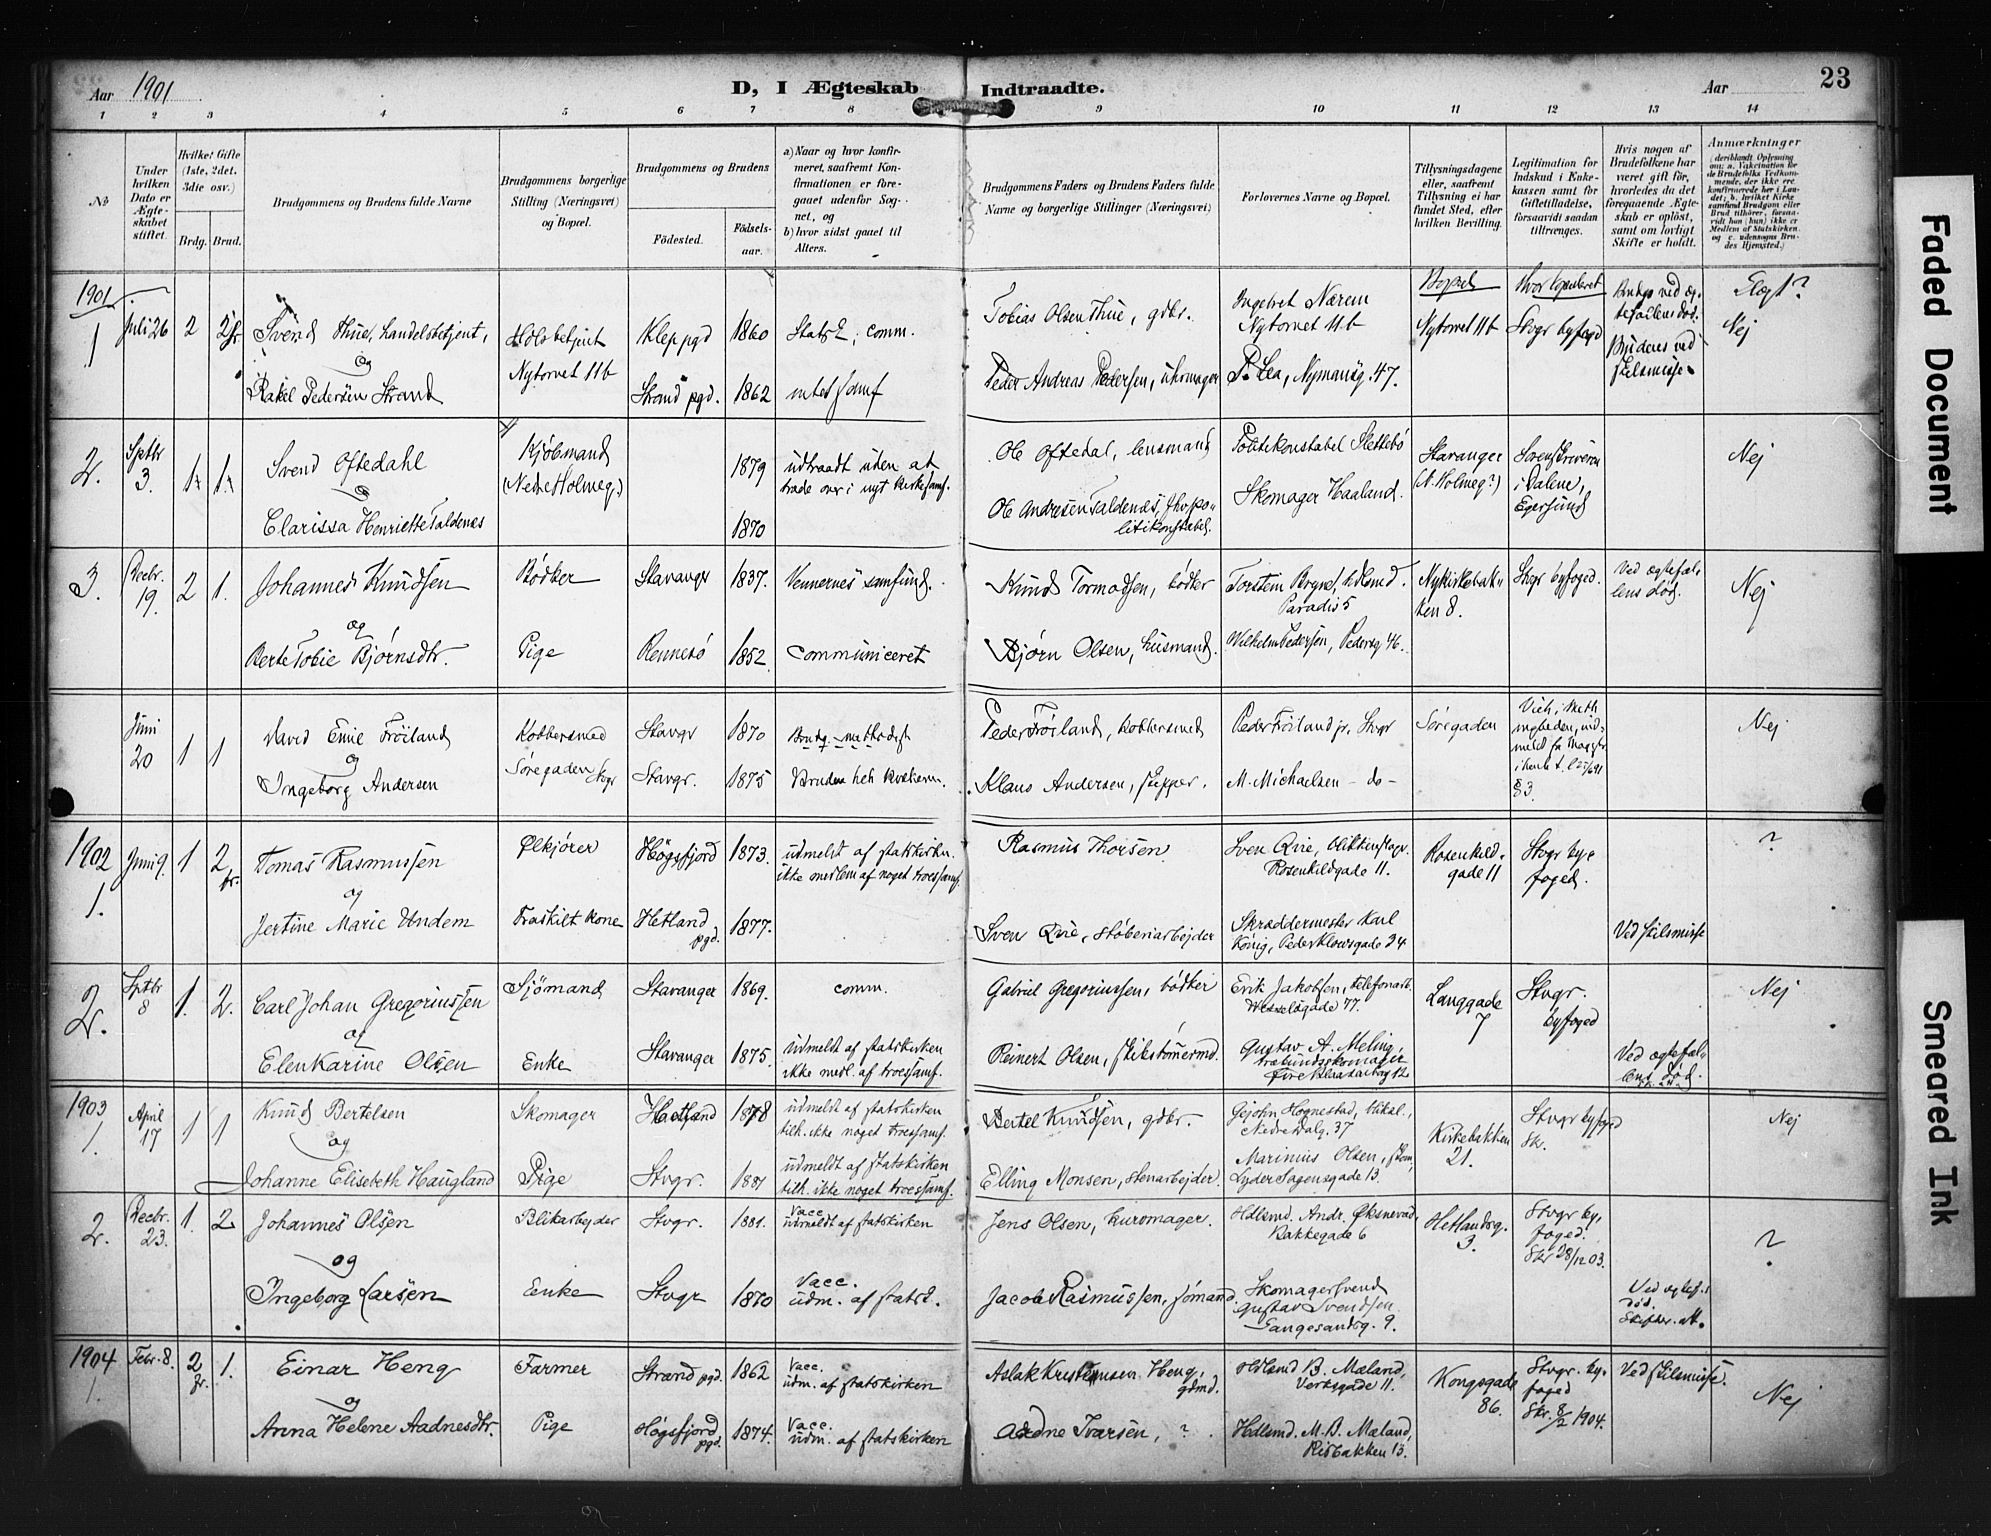 Aar 1901
D, I Ægteskab Indtraadte.
Aar
23
1 2 3 4 5 6 7 8 9 10 11 12 13 14
No
Under hvilken Dato er Ægteskabet stiftet.
Hvilket Gifte (1ste, 2det. 3die osv.)
Brdg. Brud.
Brudgommens og Brudens fulde Navne
Brudgommens borgerlige Stilling (Næringsvei) og Bopæl.
Brudgommens og Brudens
Födested.
Födselsaar.
a) Naar og hvor konfirmeret, saafremt Konfirmationen er foregaaet udenfor Sognet, og
b) hvor sidst gaaet til Alters.
Brudgommens Faders og Brudens Faders fulde Navne og borgerlige Stillinger (Næringsvei)
Forlovernes Navne og Bopæl.
Tillysningsdagene eller, saafremt Tillysning ei har fundet Sted, efter hvilken Bevilling.
Legitimation for Indskud i Enkekassen samt for Giftetilladelse, forsaavidt saadan tiltrænges.
Hvis nogen af Brudefolkene har været gift för, hvorledes da det foregaaende Ægteskab er oplöst, samt om lovligt Skifte er holdt.
Anmærkninger
(deriblandt Oplysning om: a. Vakcination for de Brudefolks Vedkommende, der ikke ere konfirmerede her i Landet; b. hvilket Kirkesamfund Brudgom eller Brud tilhörer, forsaavidt han (hun) ikke er Medlem af Statskirken og c. udensogns Brudes Hjemsted.)
1901
1 Juli 26 2 2 fr.
Svend Thue, handelsbetjent,
og
Rakel Pedersen Strand
Hdlsbetjent
Nytorvet 11b
Klep pgd 1860
Strand pgd. 1862
comm.
intet samf
Tobias Olsen Thue, gdbr.
Peder Andreas Pedersen, uhrmager
Ingebret Nærem
Nytorvet 11b
P. Lea, Nymansg. 47.
Bopæl
Nytorvet 11b
Stvgr byfoged
Brudgs ved ægtefællens död.
Brudens ved skilsmisse
Slegt?
Nej
2. Septbr 3. 1. 1.
Svend Oftedahl
og
Clarissa Henriette Taldenæs
Kjøbmand
(Nedre Holmeg.)
1879
1870
udtraadt uden at
træde over i nyt kirkesamf.
Ole Oftedal, lensmand
Ole Andresen Taldenæs, fhv. politikonstabel.
Politikonstabel Slettebö
Skomager Haaland.
Stavanger
(N. Holmeg?)
Sorenskriveren
i Dalene,
Egersund
Nej
3. Decbr. 19. 2 1.
Johannes Knudsen
og
Berte Tobie Bjørnsdtr.
Bödker
Pige
Stavangr 1837.
Rennesö 1852.
Vennernes samfund.
communiceret
Knud Tormodsen, bödker
Bjørn Olsen, husmand.
Torstein Bryne, hdlsmd.
Paradis 5
Wilhelm Pedersen, Pedersg 46.
Nykirkebakken 8.
Stvgr byfoged.
Ved ægtefællens död.
Nej
Juni 20 1 1
David Emil Fröiland
og
Ingeborg Andersen
Kobbersmed
Söregaden Stvgr
Stavgr 1870
Stavgr. 1875
Brudg. methodist
Bruden heh kvækerne.
Peder Fröiland, kobbersmed
Klaus Andersen, skipper.
Peder Fröiland jr. Stvgr
M. Michaelsen - do -
Söregaden
§3.
Nej
1902
1. Juni 9. 1 2 fr.
Tomas Rasmussen
og
Jertine Marie Undem
Ölkjörer
Fraskilt kone
Høgsfjord 1873.
Hetland pgd. 1877.
udmeldt af statskirken.
ikke medlem af noget troessamf.
Rasmus Thorsen
Sven Qvie, støberiarbejder
Sven Qvie, blikkenslager.
Rosenkildgade 11.
Skræddermester Karl
König, Peder Klowsgade 24
Rosenkildgade 11
Stvgr byfoged.
Ved skilsmisse
?
2. Septbr 8 1. 2.
Carl Johan Gregoriussen
og
Elen Karine Olsen
Sjömand
Enke
Stavanger 1869.
Stavanger 1875.
comm.
udmeldt af statskirken
ikke medl. af troessamf.
Gabriel Gregoriussen, bödker
Reinert Olsen, skibstömermd.
Erik Jakobsen, telefonarb.
Wesselsgade 77.
Gustav A. Meling,
træbundsskomager
Øvre Blaasenborg 12
Langgade 7
Stvgr. byfoged
Ved ægtefællens död.
Nej
1903
1. April 17 1 1
Knud Bertelsen
og
Johanne Elisebeth Haugland
Skomager
Pige
Hetland 1878
Stvgr. 1881
udmeldt af statskirken
tilh. ikke noget troessamf.
udmeldt af statskirken
tilh. ikke noget troessamf.
Bertel Knudsen, gdbr.
Elling Monsen, stenarbejder.
Gejohn Hognestad,
Nedre Dalg. 37
Marinius Olsen, skom,
Lyder Sagensgade 13.
Kirkebakken 21.
Stvgr byfoged
Skr.
Nej
2. Decbr. 23. 1. 2
Johannes Olsen
og
Ingeborg Larsen
Blikarbejder
Enke
Stvgr. 1881.
Stvgr 1870
Vacc.
udmeldt af statskirken
Vacc.
udm. af statsk.
Jens Olsen, kuromager.
Jacob Rasmussen, sömand.
Hdlsmd. Andr. Øksnevad,
Bakkegade 6
Skomagersvend
Gustav Svendsen
Langesandsg. 9.
Hetlandsg. 3.
Stvgr byfoged.
Skr 28/12 03.
Ved ægtef.s
död.
?
1904
1. Febr. 8. 2 fr. 1.
Einar Heng
og
Anna Helene Aadnesdtr.
Farmer
Pige
Strand pgd. 1862
Høgsfjord pgd. 1874.
Vacc.
udm. af statskirken
Vacc.
udm. af statskirken
Aslak Kristensen Heng, gdmd.
Aadne Ivarsen, ?
Hdlsmd B. Mæland,
Verksgade 11.
Hdlsmd. M. B. Mæland,
Risbakken 13.
Kongsgade 86.
Stvgr. byfoged
Skr. 8/2 1904.
Ved skilsmisse.
Nej
Faded Document
Smeared Ink